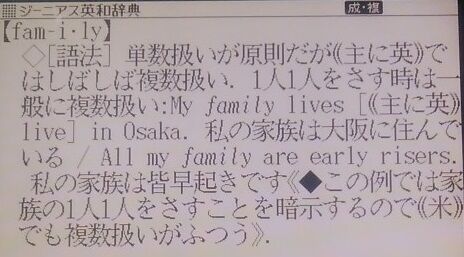 ジーニアス英和辞典 成・複
【fam-i・ly】
◇[語法] 単数扱いが原則だが《主に英》で
はしばしば複数扱い. 1人1人をさす時は一
般に複数扱い:My family lives [《主に英》
live] in Osaka. 私の家族は大阪に住んで
いる / All my family are early risers.
私の家族は皆早起きです《◆この例では家
族の1人1人をさすことを暗示するので《米》
でも複数扱いがふつう》.